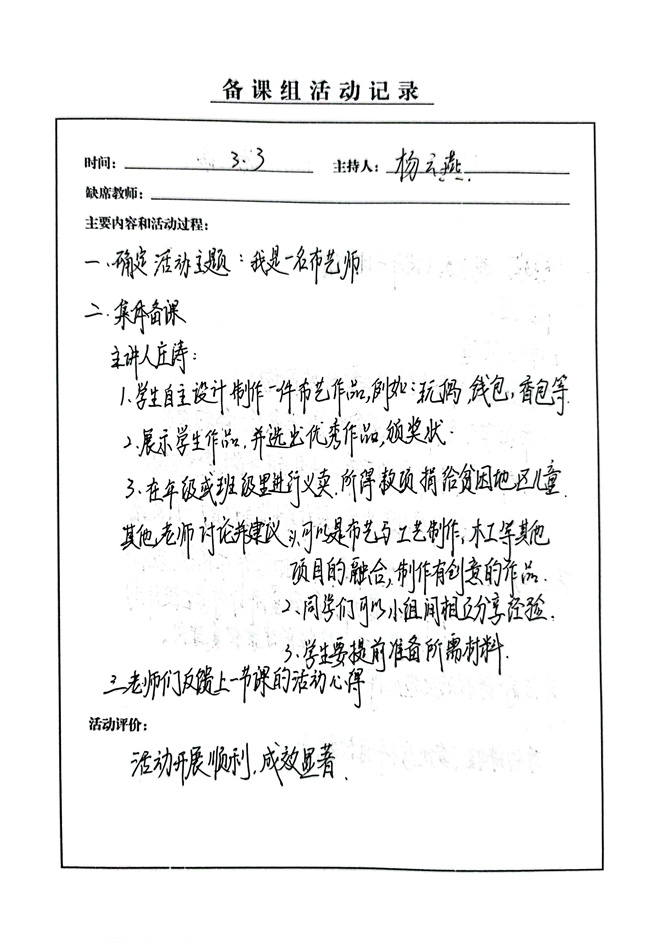 备课组活动记录
时间： 3.3 主持人： 杨云燕
缺席教师：
主要内容和活动过程：
一、确定活动主题：我是一名布艺师
二、集体备课
主讲人庄涛：
1、学生自主设计制作一件布艺作品，例如：玩偶，钱包，香包等.
2、展示学生作品，并选出优秀作品，颁奖状.
3、在年级或班级里进行义卖，所得款项捐给贫困地区儿童.
其他老师讨论并建议：1、可以是布艺与工艺制作，木工等其他
项目的融合，制作有创意的作品.
2、同学们可以小组间相互分享经验.
3、学生要提前准备所需材料.
三、老师们反馈上一节课的活动心得
活动评价：
活动开展顺利，成效显著.